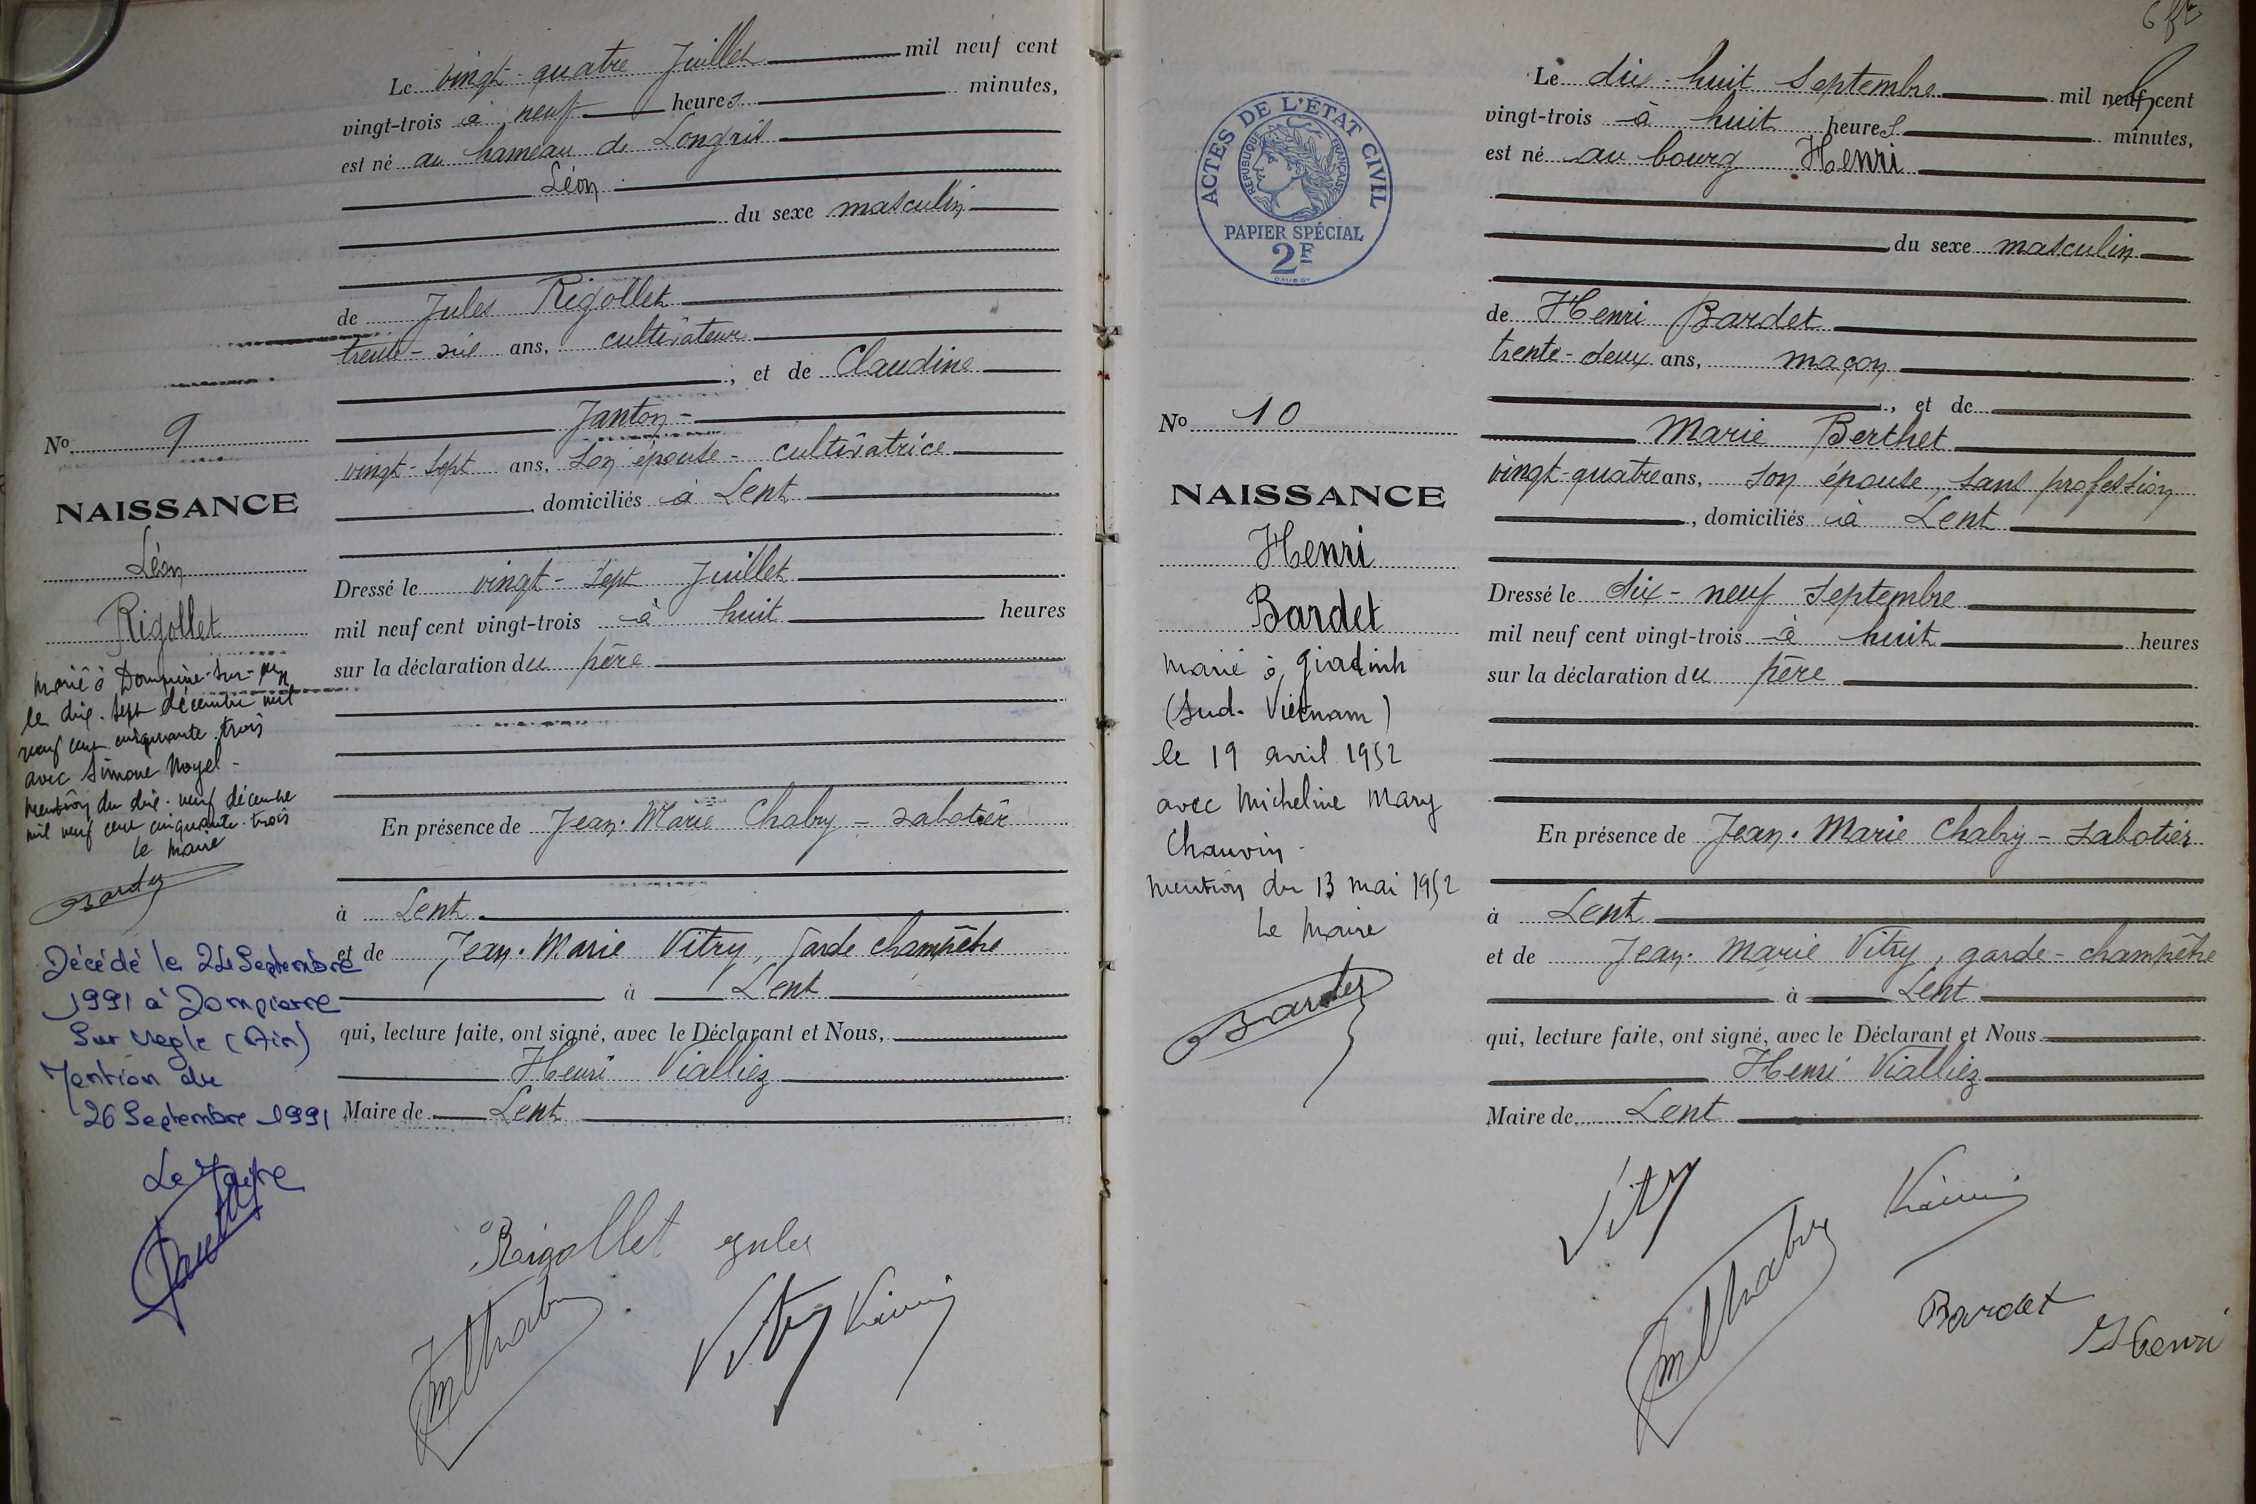 Le vingt-quatre Juillet mil neuf cent
vingt-trois à neuf heures minutes,
est né au hameau de Longris
Léon
du sexe masculin
de Jules Rigollet
trente-six ans, cultivateur
, et de Claudine
Janton
vingt-sept ans, son épouse - cultivatrice
, domiciliés à Lent
Dressé le vingt-sept Juillet
mil neuf cent vingt-trois à huit heures
sur la déclaration du père
En présence de Jean-Marie Chabry - sabotier
à Lent
et de Jean-Marie Vitry, garde champêtre
à Lent
qui, lecture faite, ont signé, avec le Déclarant et Nous,
Henri Vialliez
Maire de Lent
Rigollet Jules
Vitry
No 9
NAISSANCE
Léon
Rigollet
Marié à
le dix-sept décembre mil
neuf cent cinquante-trois
avec Simone Noyel -
Mention du dix-neuf décembre
mil neuf cent cinquante-trois
Le Maire
Bardet
Décédé le 24 Septembre
1991 à Dompierre
Sur Veyle (Ain)
Mention du
26 Septembre 1991
Le Maire
ACTES DE L'ÉTAT CIVIL
RÉPUBLIQUE FRANÇAISE
PAPIER SPÉCIAL
2F
No 10
NAISSANCE
Henri
Bardet
Marié à Giadinh
(Sud-Vietnam)
le 19 avril 1952
avec Micheline Mary
Chauvin -
Mention du 13 mai 1952
Le Maire
Bardet
Le dix-huit Septembre mil neuf cent
vingt-trois à huit heures minutes,
est né au bourg Henri
du sexe masculin
de Henri Bardet
trente-deux ans, maçon
, et de
Marie Berthet
vingt-quatre ans, son épouse, sans profession
, domiciliés à Lent
Dressé le dix-neuf Septembre
mil neuf cent vingt-trois à huit heures
sur la déclaration du père
En présence de Jean-Marie Chabry - sabotier
à Lent
et de Jean-Marie Vitry, garde-champêtre
à Lent
qui, lecture faite, ont signé, avec le Déclarant et Nous
Henri Vialliez
Maire de Lent
Vitry
Bardet Henri